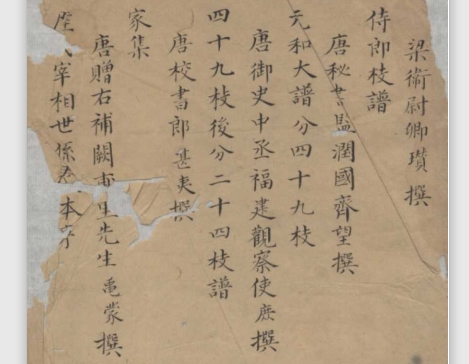 梁衛尉卿瓚撰
侍郎枝譜
唐秘書監潤國齊望撰
元和大譜分四十九枝
唐御史中丞福建觀察使庶撰
四十九枝後分二十四枝譜
唐校書郎甚夷撰
家集
唐贈右補闕甫里先生龜蒙撰
宰相世係 本